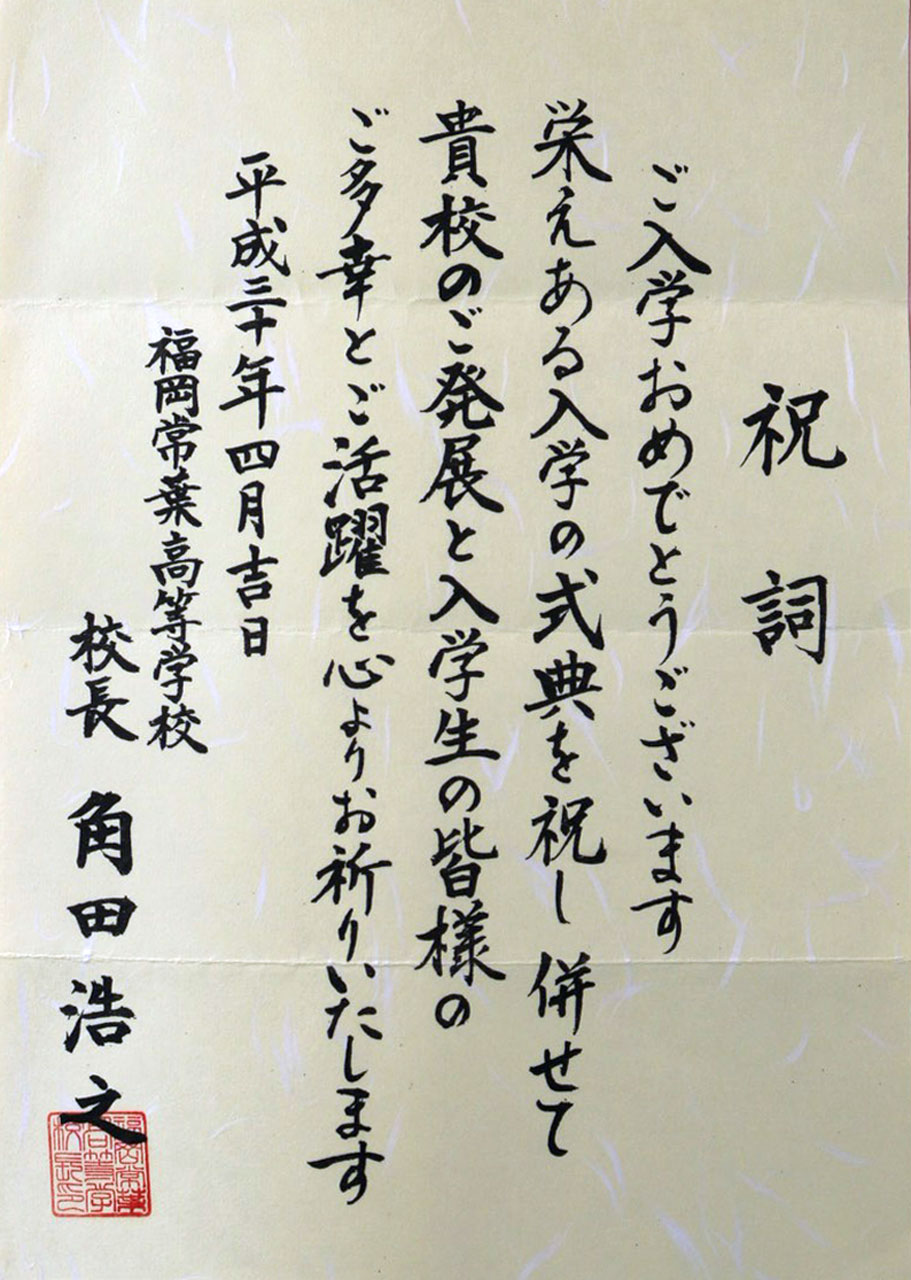 祝詞
ご入学おめでとうございます
栄えある入学の式典を祝し併せて
貴校のご発展と入学生の皆様の
ご多幸とご活躍を心よりお祈りいたします
平成三十年四月吉日
福岡常葉高等学校
校長 角田浩之
福岡常葉
高等学
校長印